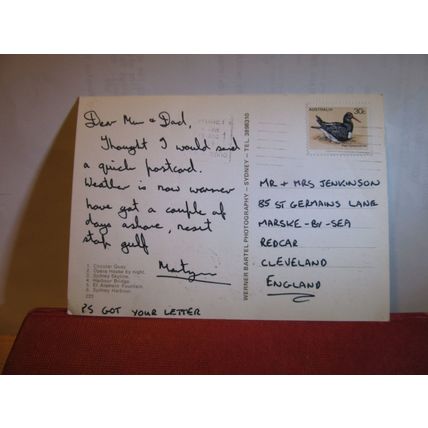 Dear Mum + Dad,
Thought I would send
a quick postcard.
Weather is now warmer
have got a couple of
days ashore, next
stop gulf
Martyn
1. Circular Quay.
2. Opera House by night.
3. Sydney Skyline.
4. Harbour Bridge.
5. El Alamein Fountain.
6. Sydney Harbour.
223
PS GOT YOUR LETTER
WERNER BARTEL PHOTOGRAPHY - SYDNEY - TEL. 3898310
AUSTRALIA 30c
MR + MRS JENKINSON
85 ST GERMAINS LANE
MARSKE-BY-SEA
REDCAR
CLEVELAND
ENGLAND